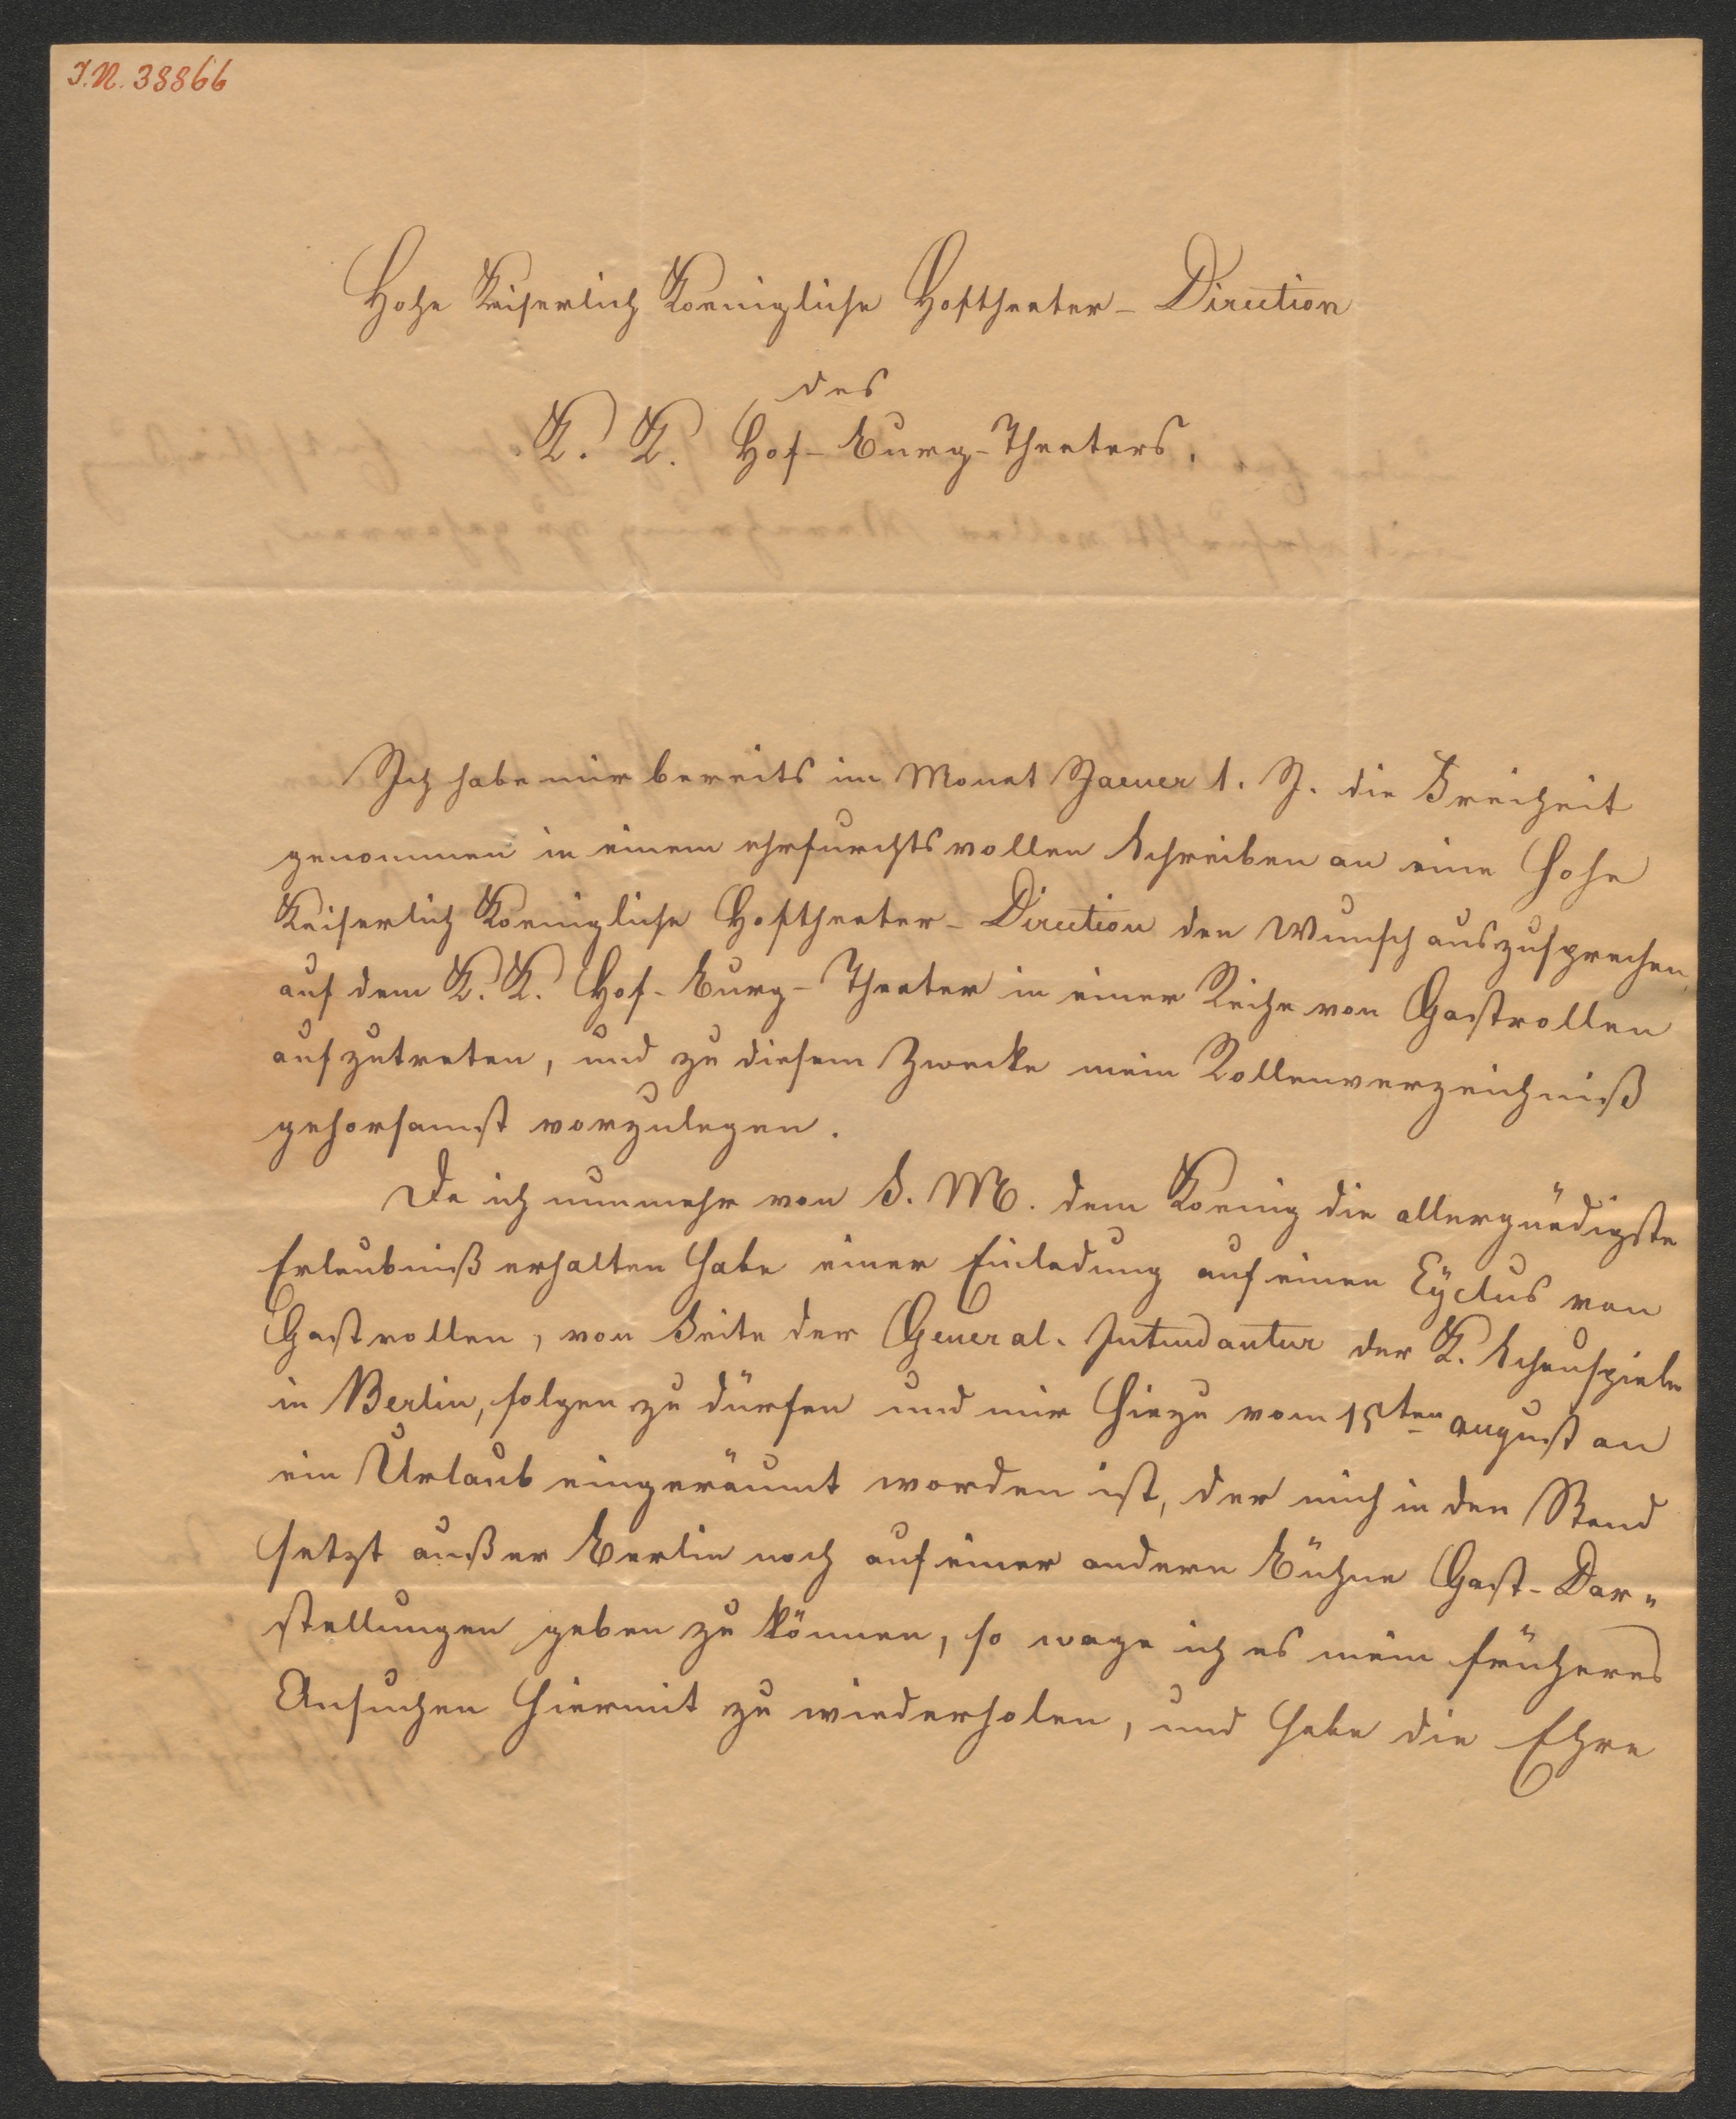 J.N. 38866
Hohe Kaiserlich Koenigliche Hoftheater-Direction
des
K. K. Hof-Burg-Theaters.
Ich habe mir bereits im Monat Jaener l. J. die Freiheit
genommen in einem ehrfurchtsvollen Schreiben an eine hohe
Kaiserlich Koenigliche Hoftheater-Direction den Wunsch auszusprechen,
auf dem K. K. Hof-Burg-Theater in einer Reihe von Gastrollen
aufzutreten, und zu diesem Zwecke mein Rollenverzeichniß
gehorsamst vorzulegen.
Da ich nunmehr von S. M. dem Koenig die allergnädigste
Erlaubniß erhalten habe einer Einladung auf einen Cyclus von
Gastrollen, von Seite der General-Intendantur der K. Schauspiele
in Berlin, folgen zu dürfen und mir hiezu vom 15ten August an
ein Urlaub eingeräumt worden ist, der mich in den Stand
setzt außer Berlin noch auf einer andern Bühne Gast-Dar-
stellungen geben zu können, so wage ich es mein früheres
Ansuchen hiermit zu wiederholen, und habe die Ehre